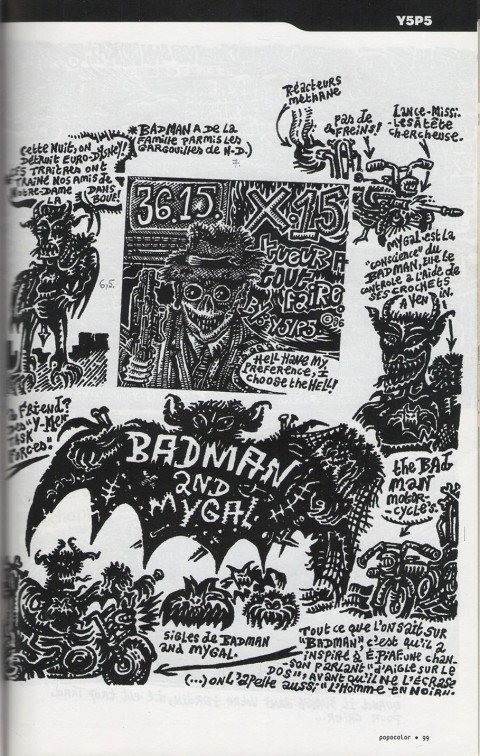 Y5P5
Réacteurs
méthane
pas de
freins!
Lance-Missi-
-les à tête
chercheuse.
*BADMAN A DE LA
FAMILLE PARMIS LES
GARGOUILLES de N-D.)
7.
Cette Nuit, on
DÉTRUIT EURO-DISNEY!
CES TRAÎTRES ONT
TRAÎNÉ NOS AMIS de
NOTRE-DAME DANS
LA BOUE!
36.15. X.15
tueur à
tout
faire.
by Y5P5 ©96
6,5.
Hell have my
preference, I
choose the HELL!
Mygal est la
"conscience" du
BADMAN, elle le
contrôle à l'aide de
SES CROCHETS
A VENIN.
a friend?
Des "Y-Men
TASK
FORCED."
BADMAN
AND
MYGAL
the BAD
MAN
MOTOR-
CYCLE'S.
sigles de BADMAN
and mygal.
Tout ce que l'on sait SUR
"BADMAN", c'est qu'il a
inspiré à E.PIAF une chan-
-SON PARLANT "d'AIGLE SUR LE
DOS", AVANT qu'il NE L'ÉCRASE
(...) on l'apelle aussi: "L'HOMME EN NOIR".
popocolor • 99